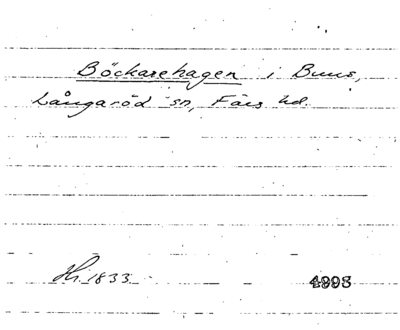 Böckarehagen i Buus,
Långaröd sn, Färs hd.
Hi. 1833. 4993